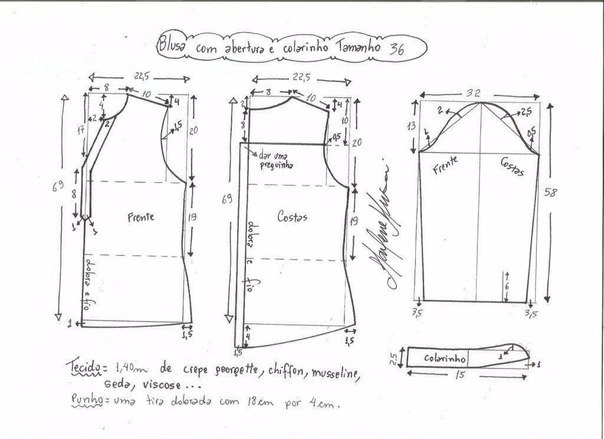 Blusa com abertura e colarinho Tamanho 36
22,5
8
10
4
4
2
2
17
1,5
20
69
8
1
1
Frente
19
dobra e fio
1
1,5
22,5
8
10
2
4
8
10
0,5
20
dar uma
preguinha
69
Costas
19
dobra e fio
4
1,5
1,5
32
13
2
2,5
1
0,5
Frente
Costas
58
6
3,5
3,5
2,5
colarinho
1
1
1
15
Tecido = 1,40m de crepe georgette, chiffon, musseline,
seda, viscose ...
Punho = uma tira dobrada com 18cm por 4cm.